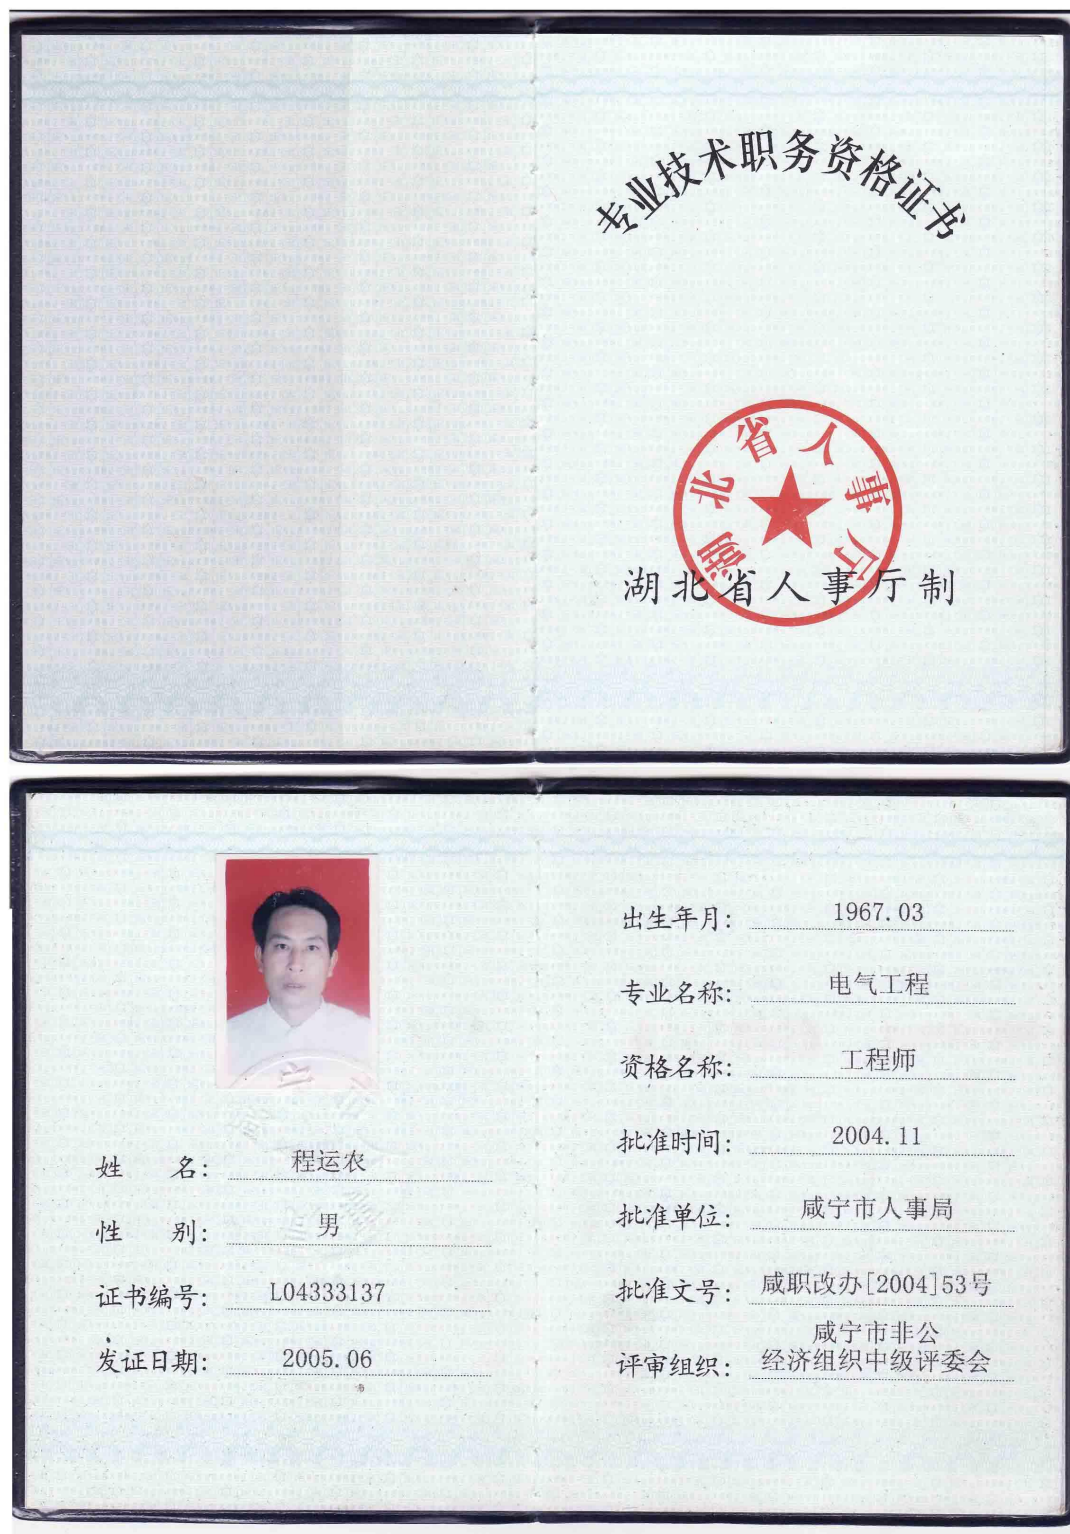 专业技术职务资格证书
湖北省人事厅
湖北省人事厅制
姓 名: 程运农
性 别: 男
证书编号: L04333137
发证日期: 2005.06
出生年月: 1967.03
专业名称: 电气工程
资格名称: 工程师
批准时间: 2004.11
批准单位: 咸宁市人事局
批准文号: 咸职改办[2004]53号
咸宁市非公
评审组织: 经济组织中级评委会